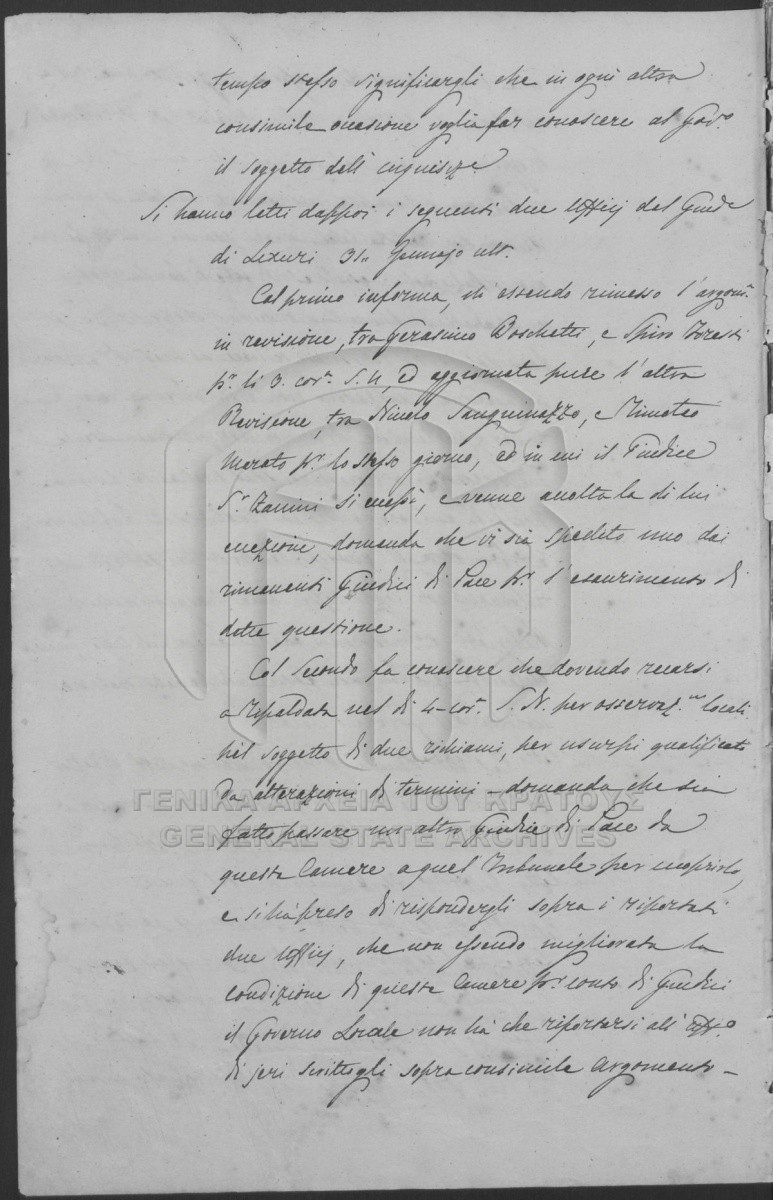 tempo stesso significargli che in ogni altra
consimile occasione voglia far conoscere al Gov.o
il soggetto dell' inquisiz.e
Si hanno letti dappoi i seguenti due Ufficj del Giud.e
di Lixuri 31. Gennajo ult.
Col primo informa, ch' essendo rimesso l' argom.
in revisione, tra Gerasimo Boschetti, e Spiro
p.r li 3. cor.e S. N, ed aggiornata pure l' altra
Revisione, tra Nicolo Sanguinazzo, e Timoteo
p.r lo stesso giorno, ed in cui il Giudice
S.r Zanini si , e venne accolta la di lui
eccezione, domanda che vi sia spedito uno dai
rimanenti Giudici di Pace p.r l' esaurimento di
dette questione.
Col Secondo fa conoscere che dovendo recarsi
a Ripaldata nel di 4 cor.e S. N. per osservaz.ni locali
nel soggetto di due richiami, per usurpi qualificati
da alterazioni di termini - domanda che sia
fatto passare un altro Giudice di Pace da
questa Camera a quel Tribunale per
e si ha preso di rispondergli sopra i riportati
due Ufficj, che non essendo migliorata la
condizione di questa Camera p.r conto di Giudici
il Governo Locale non ha che riportarsi all' Uff.o
di jeri scrittogli sopra consimile argomento -
ΓΕΝΙΚΑ ΑΡΧΕΙΑ ΤΟΥ ΚΡΑΤΟΥΣ
GENERAL STATE ARCHIVES